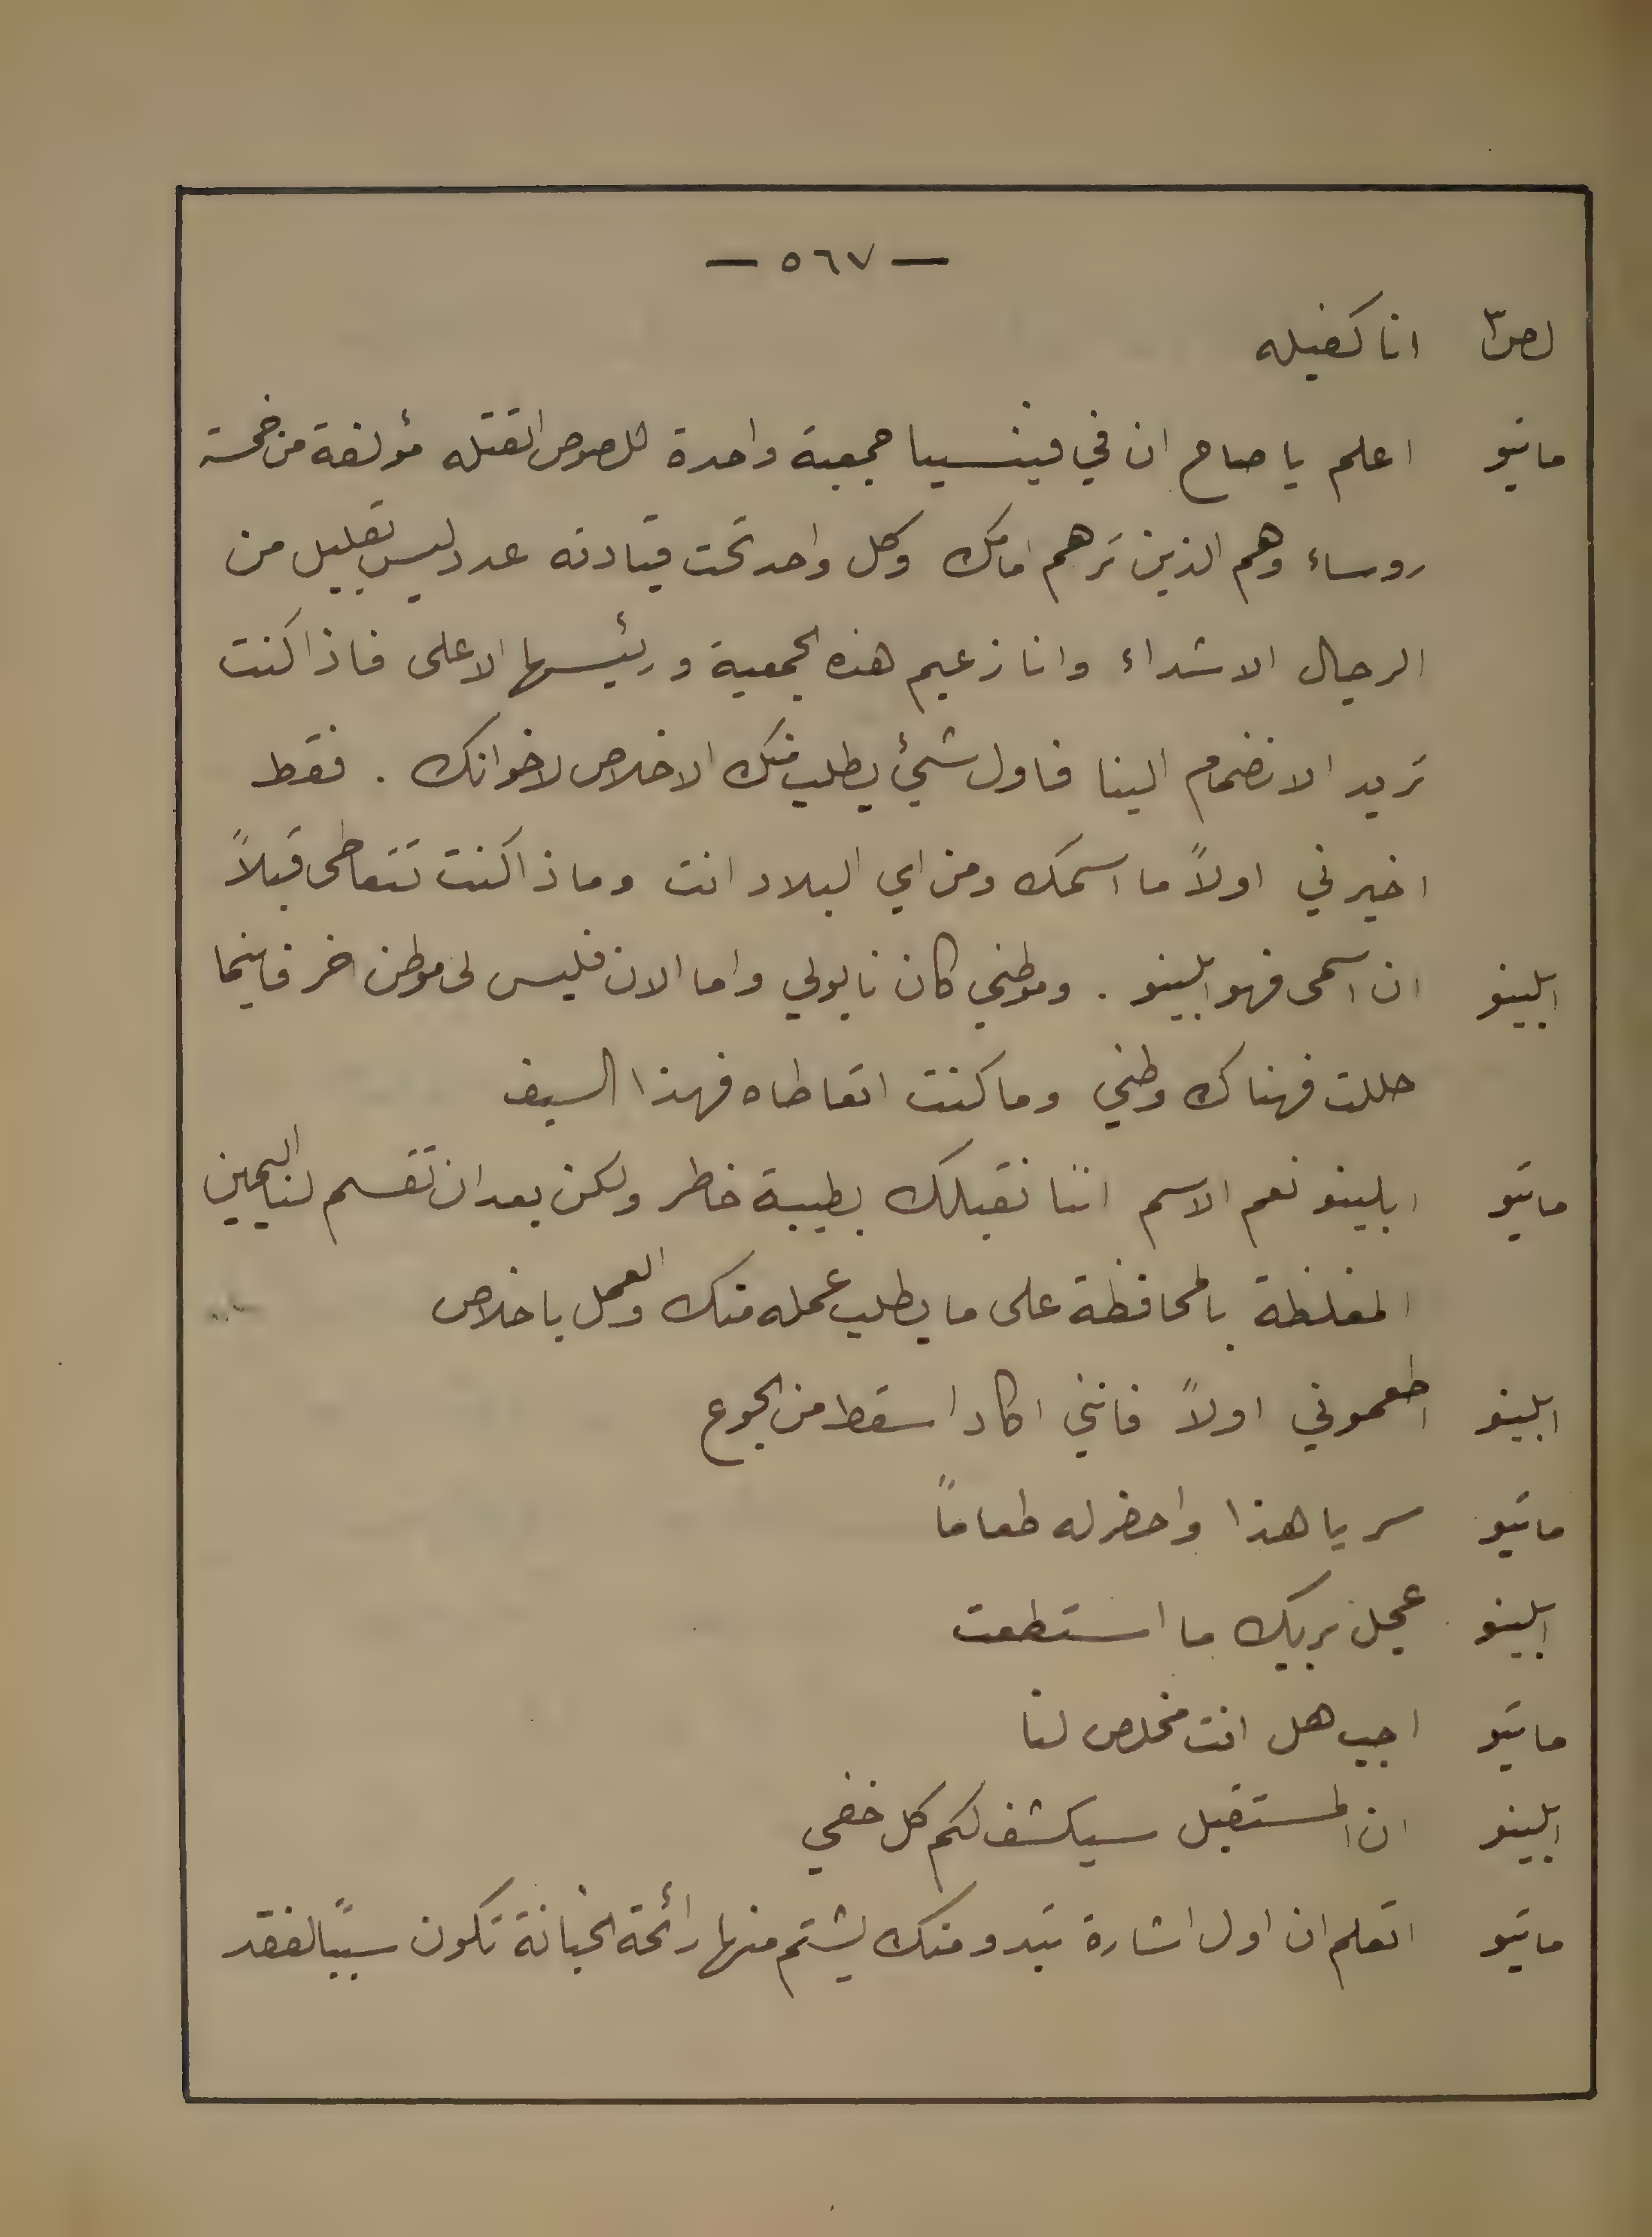 — ٥٦٧ —
لص٣ انا كفيله
ماتيو اعلم يا صاح ان في فينسيا جمعية واحدة للصوص القتله مؤلفة من خمسة
روساء وهم الذين ترهم امامك وكل واحد تحت قيادته عدد ليس بقليل من
الرجال الاشداء وانا زعيم هذه الجمعية ورئيسها الاعلى فاذا كنت
تريد الانضمام الينا فاول شيئ يطلب منك الاخلاص لاخوانك . فقط
اخبرني اولاً ما اسمك ومن اي البلاد انت وماذا كنت تتعاطى قبلاً
ابلينو ان اسمى فهو ابلينو . وموطني كان نابولي واما الان فليس لى موطن اخر فاينما
حللت فهناك وطني وما كنت اتعاطاه فهذا السيف
ماتيو ابلينو نعم الاسم اننا نقبلك بطيبة خاطر ولكن بعد ان تقسم لنا اليمين
المغلظة بالمحافظة على ما يطلب عمله منك والعمل باخلاص
ابلينو اطعموني اولاً فانني اكاد اسقط من الجوع
ماتيو سر يا هذا واحضر له طعاماً
ابلينو عجل بربك ما استطعت
ماتيو اجب هل انت مخلص لنا
ابلينو ان المستقبل سيكشف لكم كل خفي
ماتيو اتعلم ان اول اشارة تبدو منك يشتم منها رائحة الخيانة تكون سبباً لفقد